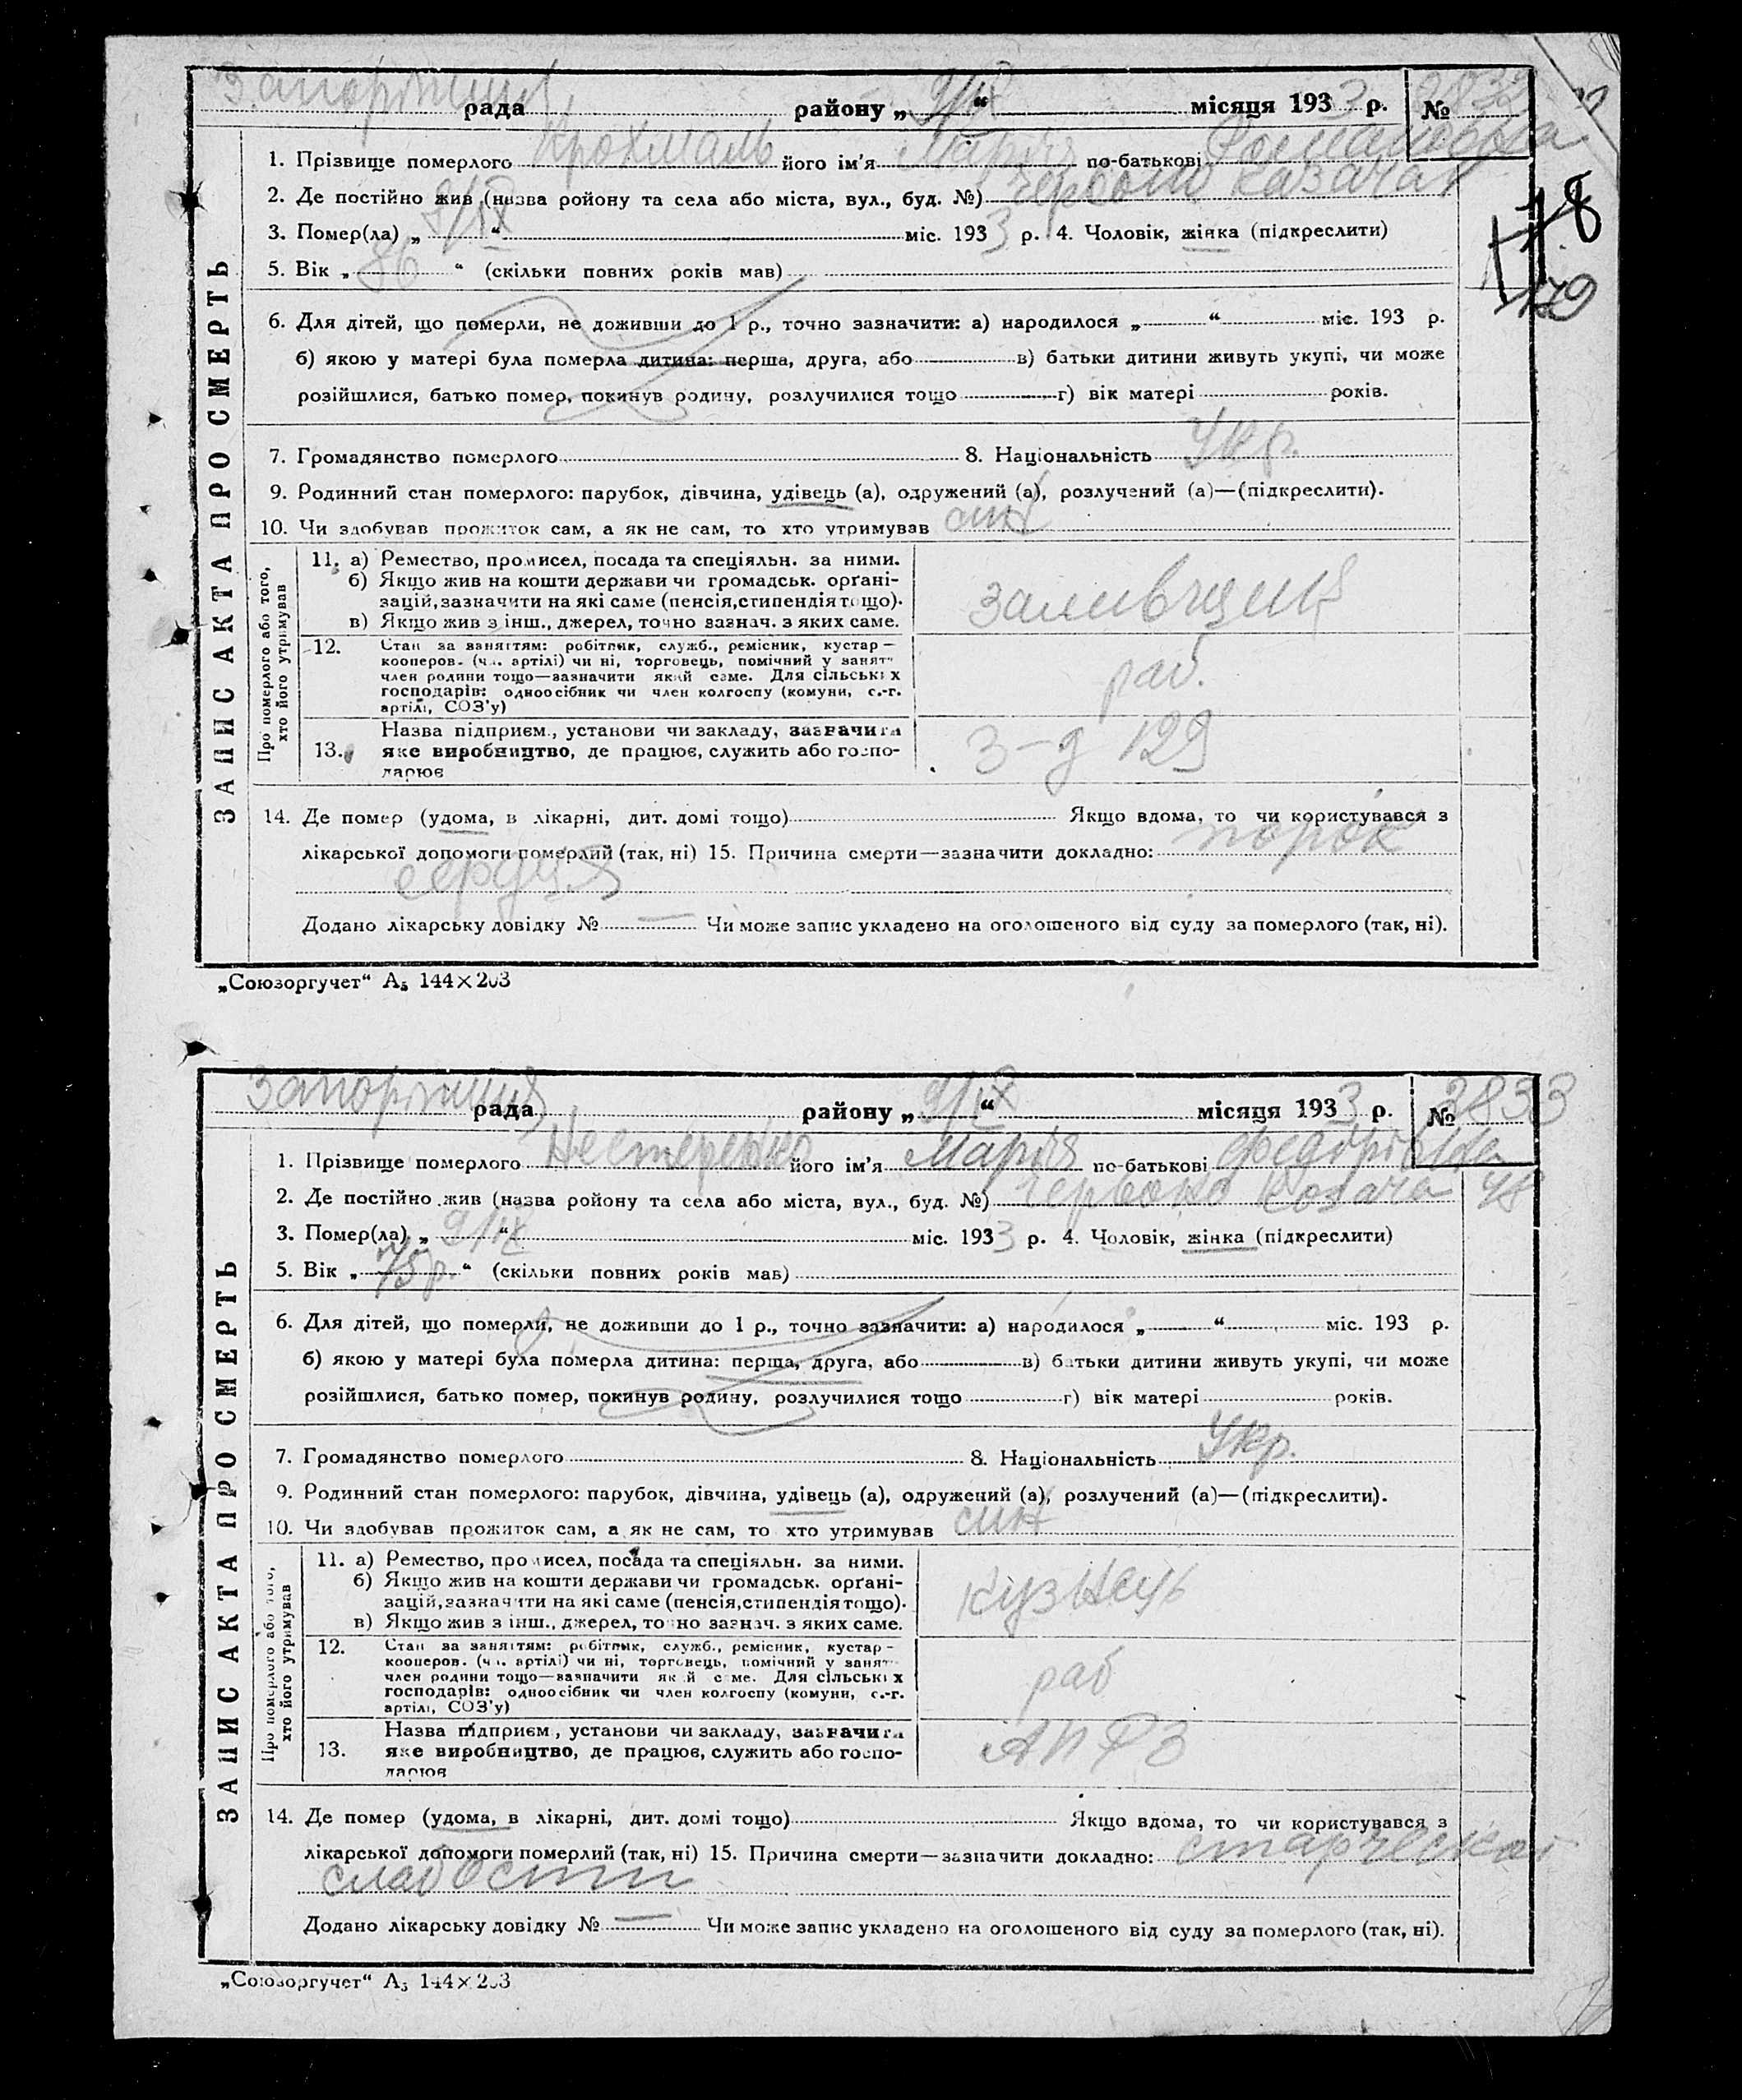 Запоріжця рада району „ 9/IX “ місяця 1933 р. № 2832
1. Прізвище померлого Крохмаль його ім'я Марія по-батькові Романовна
2. Де постійно жив (назва ройону та села або міста, вул., буд. №) Червоно казача
3. Помер(ла) „ 9/IX “ міс. 1933 р. 4. Чоловік, жінка (підкреслити)
178
179
5. Вік „ “ (скільки повних років мав)
6. Для дітей, що померли, не доживши до 1 р., точно зазначити: а) народилося „ “ міс. 193 р.
б) якою у матері була померла дитина: перша, друга, або в) батьки дитини живуть укупі, чи може
розійшлися, батько помер, покинув родину, розлучилися тощо г) вік матері років.
7. Громадянство померлого 8. Національність Укр.
9. Родинний стан померлого: парубок, дівчина, удівець (а), одружений (а), розлучений (а)—(підкреслити).
10. Чи здобував прожиток сам, а як не сам, то хто утримував син
ЗАПИС АКТА ПРО СМЕРТЬ
Про померлого або того, хто його утримував
11. а) Ремество, промисел, посада та спеціяльн. за ними.
б) Якщо жив на кошти держави чи громадськ. орґані-
зацій, зазначити на які саме (пенсія, стипендія тощо).
в) Якщо жив з інш., джерел, точно зазнач. з яких саме.
заливщик
12. Стан за заняттям: робітник, служб., ремісник, кустар—
кооперов. (чл. артілі) чи ні, торговець, помічний у занят.
член родини тощо—зазначити який саме. Для сільських
господарів: одноосібник чи член колгоспу (комуни, с.-г.
артілі, СОЗ'у)
раб.
13. Назва підприєм., установи чи закладу, зазначити
яке виробництво, де працює, служить або госпо-
дарює
З-д 129
14. Де помер (удома, в лікарні, дит. домі тощо) Якщо вдома, то чи користувався з
лікарської допомоги померлий (так, ні) 15. Причина смерти—зазначити докладно: порок
сердця
Додано лікарську довідку № — Чи може запис укладено на оголошеного від суду за померлого (так, ні).
„Союзоргучет“ А5 144×203
Запоріжця рада району „ 9/IX “ місяця 1933 р. № 2833
1. Прізвище померлого Нестеренко його ім'я Марія по-батькові Федорівна
2. Де постійно жив (назва ройону та села або міста, вул., буд. №) Червоно Козача 48
3. Помер(ла) „ 9/IX “ міс. 1933 р. 4. Чоловік, жінка (підкреслити)
5. Вік „ 75 р. “ (скільки повних років мав)
6. Для дітей, що померли, не доживши до 1 р., точно зазначити: а) народилося „ “ міс. 193 р.
б) якою у матері була померла дитина: перша, друга, або в) батьки дитини живуть укупі, чи може
розійшлися, батько помер, покинув родину, розлучилися тощо г) вік матері років.
7. Громадянство померлого 8. Національність Укр.
9. Родинний стан померлого: парубок, дівчина, удівець (а), одружений (а), розлучений (а)—(підкреслити).
10. Чи здобував прожиток сам, а як не сам, то хто утримував син
ЗАПИС АКТА ПРО СМЕРТЬ
Про померлого або того, хто його утримував
11. а) Ремество, промисел, посада та спеціяльн. за ними.
б) Якщо жив на кошти держави чи громадськ. орґані-
зацій, зазначити на які саме (пенсія, стипендія тощо).
в) Якщо жив з інш., джерел, точно зазнач. з яких саме.
кузнець
12. Стан за заняттям: робітник, служб., ремісник, кустар—
кооперов. (чл. артілі) чи ні, торговець, помічний у занят.
член родини тощо—зазначити який саме. Для сільських
господарів: одноосібник чи член колгоспу (комуни, с.-г.
артілі, СОЗ'у)
раб
13. Назва підприєм., установи чи закладу, зазначити
яке виробництво, де працює, служить або госпо-
дарює
АПРЗ
14. Де помер (удома, в лікарні, дит. домі тощо) Якщо вдома, то чи користувався з
лікарської допомоги померлий (так, ні) 15. Причина смерти—зазначити докладно: старческая
слабости
Додано лікарську довідку № — Чи може запис укладено на оголошеного від суду за померлого (так, ні).
„Союзоргучет“ А5 144×203